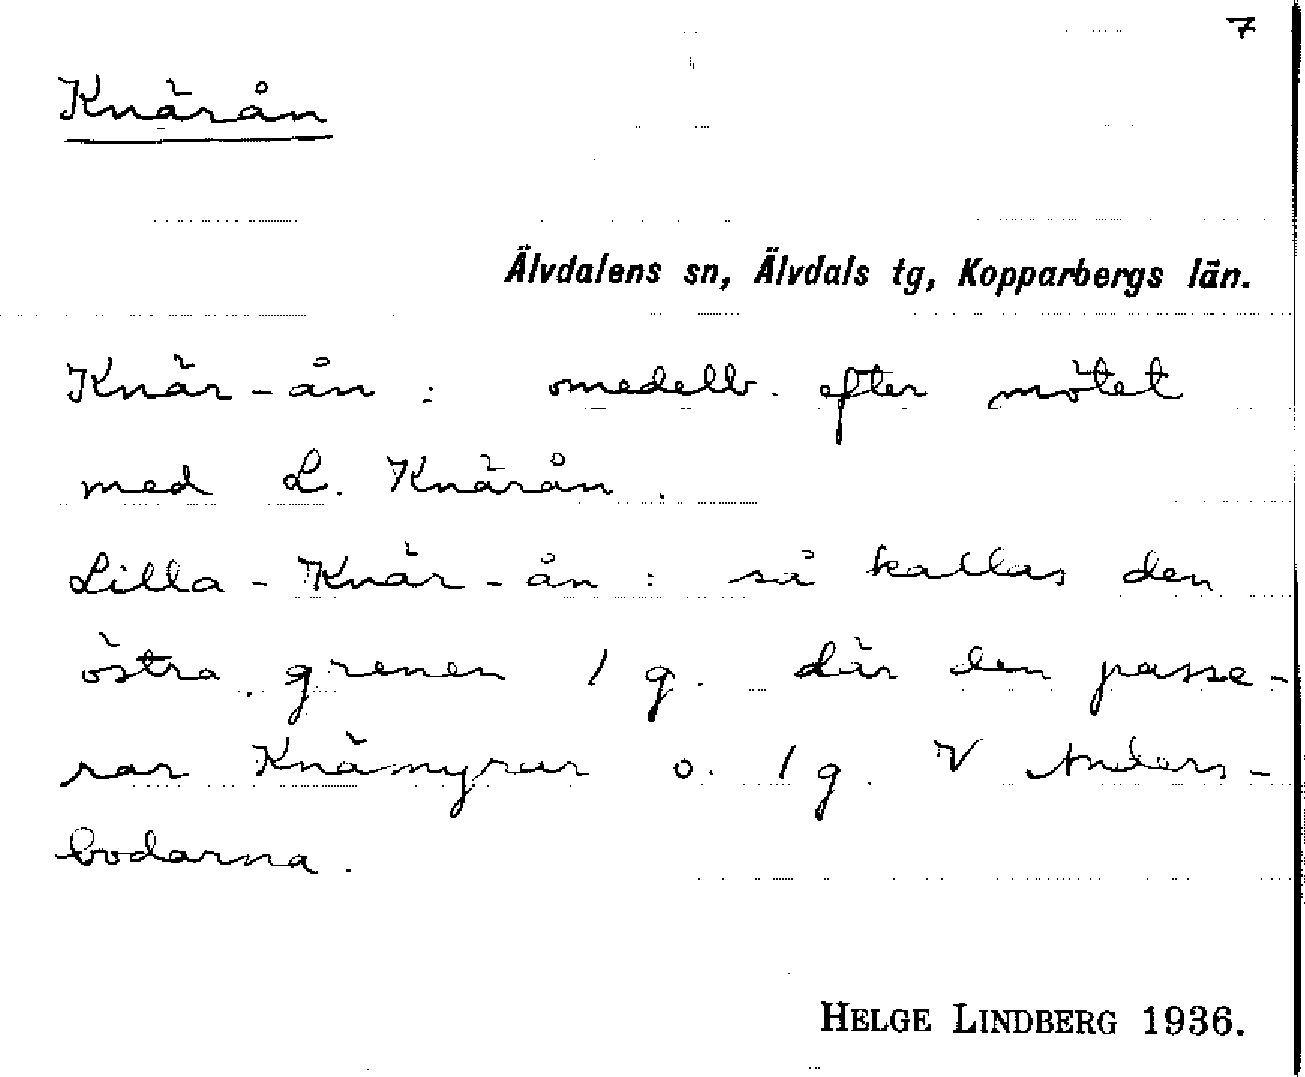 7
Knärån
Älvdalens sn, Älvdals tg, Kopparbergs län.
Knär-ån : omedelb. efter mötet
med L. Knärån.
Lilla-Knär-ån : så kallas den
östra grenen / g. där den passe-
rar Knämyrar o. / g. V Anders-
bodarna.
HELGE LINDBERG 1936.